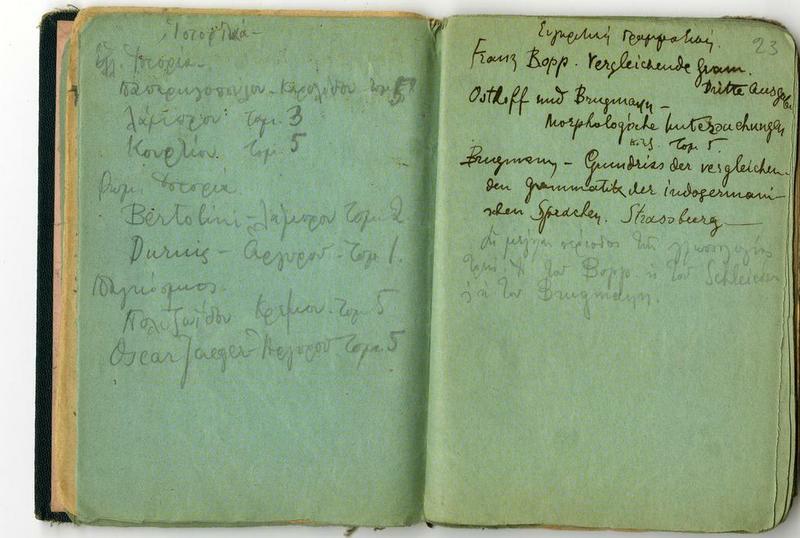 Ἱστορικά -
Ἑλ. Ἱστορία -
Παπαρρηγοπούλου - Καρολίδου τομ. 5
Λάμπρου τομ. 3
Κουρτίου τομ. 5
Ῥωμ. Ἱστορία
Bertolini - Λάμπρου τομ. 2
Duruis - Ἀργυρου - τομ. 1.
Παγκόσμιος.
Πολυζωίδου Κρέμου. τομ 5
Oscar Jaeger - Ἀργυρου τομ. 5
Συγκριτική Γραμματική.
23
Franz Bopp. Vergleichende Gram.
Dritte Ausgabe
Osthoff und Brugmann -
Morphologische Untersuchungen
κτλ. τομ 5.
Brugmann - Grundriss der vergleichen-
den Grammatik der indogermani-
schen Sprachen. Strassburg -
Αἱ μεγάλαι περίοδοι τῆς γλωσσολογίας
τρεῖς ἡ τοῦ Bopp. ἡ τοῦ Schleicher
ἡ τοῦ Brugmann.